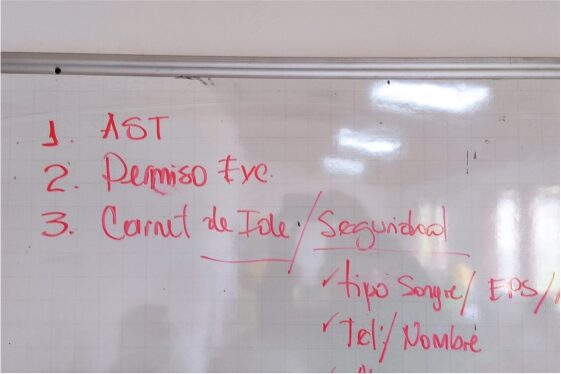 1. AST
2. Permiso Exc.
3. Carnet de Ide / Seguridad
✓ tipo Sangre / EPS /
✓ Tel: / Nombre